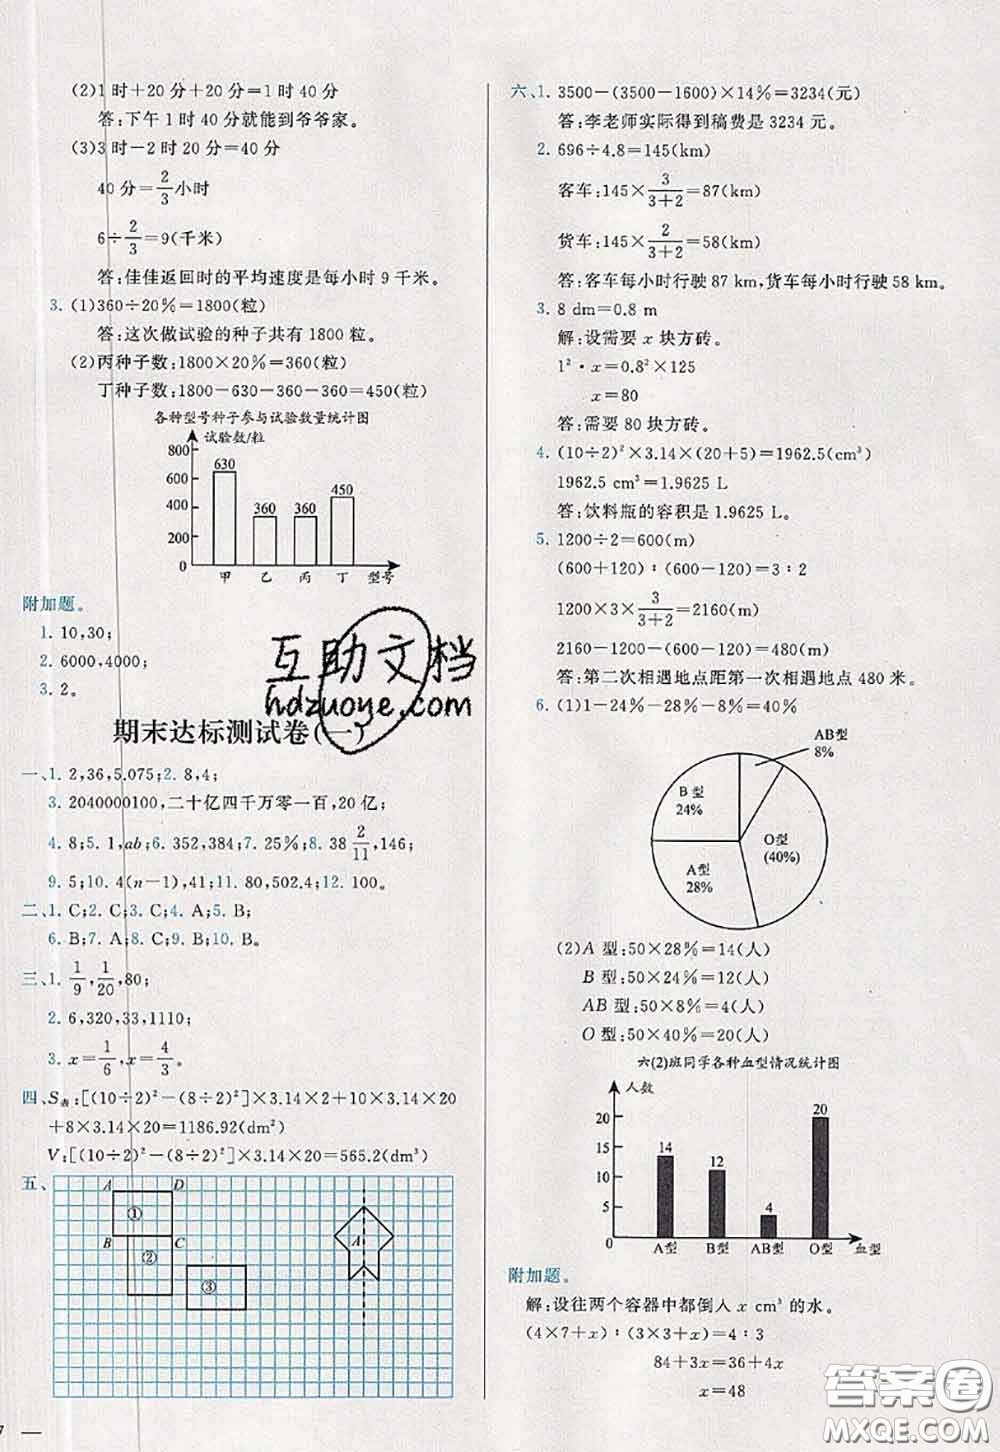 (2)1时+20分+20分=1时40分
答:下午1时40分就能到爷爷家。
(3)3时-2时20分=40分
40分=2/3小时
6÷2/3=9(千米)
答:佳佳返回时的平均速度是每小时9千米。
3. (1)360÷20%=1800(粒)
答:这次做试验的种子共有1800粒。
(2)丙种子数:1800×20%=360(粒)
丁种子数:1800-630-360-360=450(粒)
各种型号种子参与试验数量统计图
试验数/粒
800
600
400
200
0
630
360
360
450
甲 乙 丙 丁 型号
附加题。
1. 10,30;
2. 6000,4000;
3. 2。
互助文档
hdzuoye.com
期末达标测试卷(一)
一、1. 2,36,5.075;2. 8,4;
3. 2040000100,二十亿四千万零一百,20亿;
4. 8;5. 1,ab;6. 352,384;7. 25%;8. 38 2/11,146;
9. 5;10. 4(n-1),41;11. 80,502.4;12. 100。
二、1. C;2. C;3. C;4. A;5. B;
6. B;7. A;8. C;9. B;10. B。
三、1. 1/9,1/20,80;
2. 6,320,33,1110;
3. x=1/6,x=4/3。
四、S表:[(10÷2)²-(8÷2)²]×3.14×2+10×3.14×20
+8×3.14×20=1186.92(dm²)
V:[(10÷2)²-(8÷2)²]×3.14×20=565.2(dm³)
五、
A D
①
B C
②
③
A
7
六、1. 3500-(3500-1600)×14%=3234(元)
答:李老师实际得到稿费是3234元。
2. 696÷4.8=145(km)
客车:145×3/(3+2)=87(km)
货车:145×2/(3+2)=58(km)
答:客车每小时行驶87 km,货车每小时行驶58 km。
3. 8 dm=0.8 m
解:设需要x块方砖。
1²·x=0.8²×125
x=80
答:需要80块方砖。
4. (10÷2)²×3.14×(20+5)=1962.5(cm³)
1962.5 cm³=1.9625 L
答:饮料瓶的容积是1.9625 L。
5. 1200÷2=600(m)
(600+120)∶(600-120)=3∶2
1200×3×3/(3+2)=2160(m)
2160-1200-(600-120)=480(m)
答:第二次相遇地点距第一次相遇地点480米。
6. (1)1-24%-28%-8%=40%
AB型
8%
B型
24%
O型
(40%)
A型
28%
(2)A型:50×28%=14(人)
B型:50×24%=12(人)
AB型:50×8%=4(人)
O型:50×40%=20(人)
六(2)班同学各种血型情况统计图
人数
20
15
10
5
0
14
12
4
20
A型 B型 AB型 O型 血型
附加题。
解:设往两个容器中都倒入x cm³的水。
(4×7+x)∶(3×3+x)=4∶3
84+3x=36+4x
x=48
答案圈
MXQE.COM